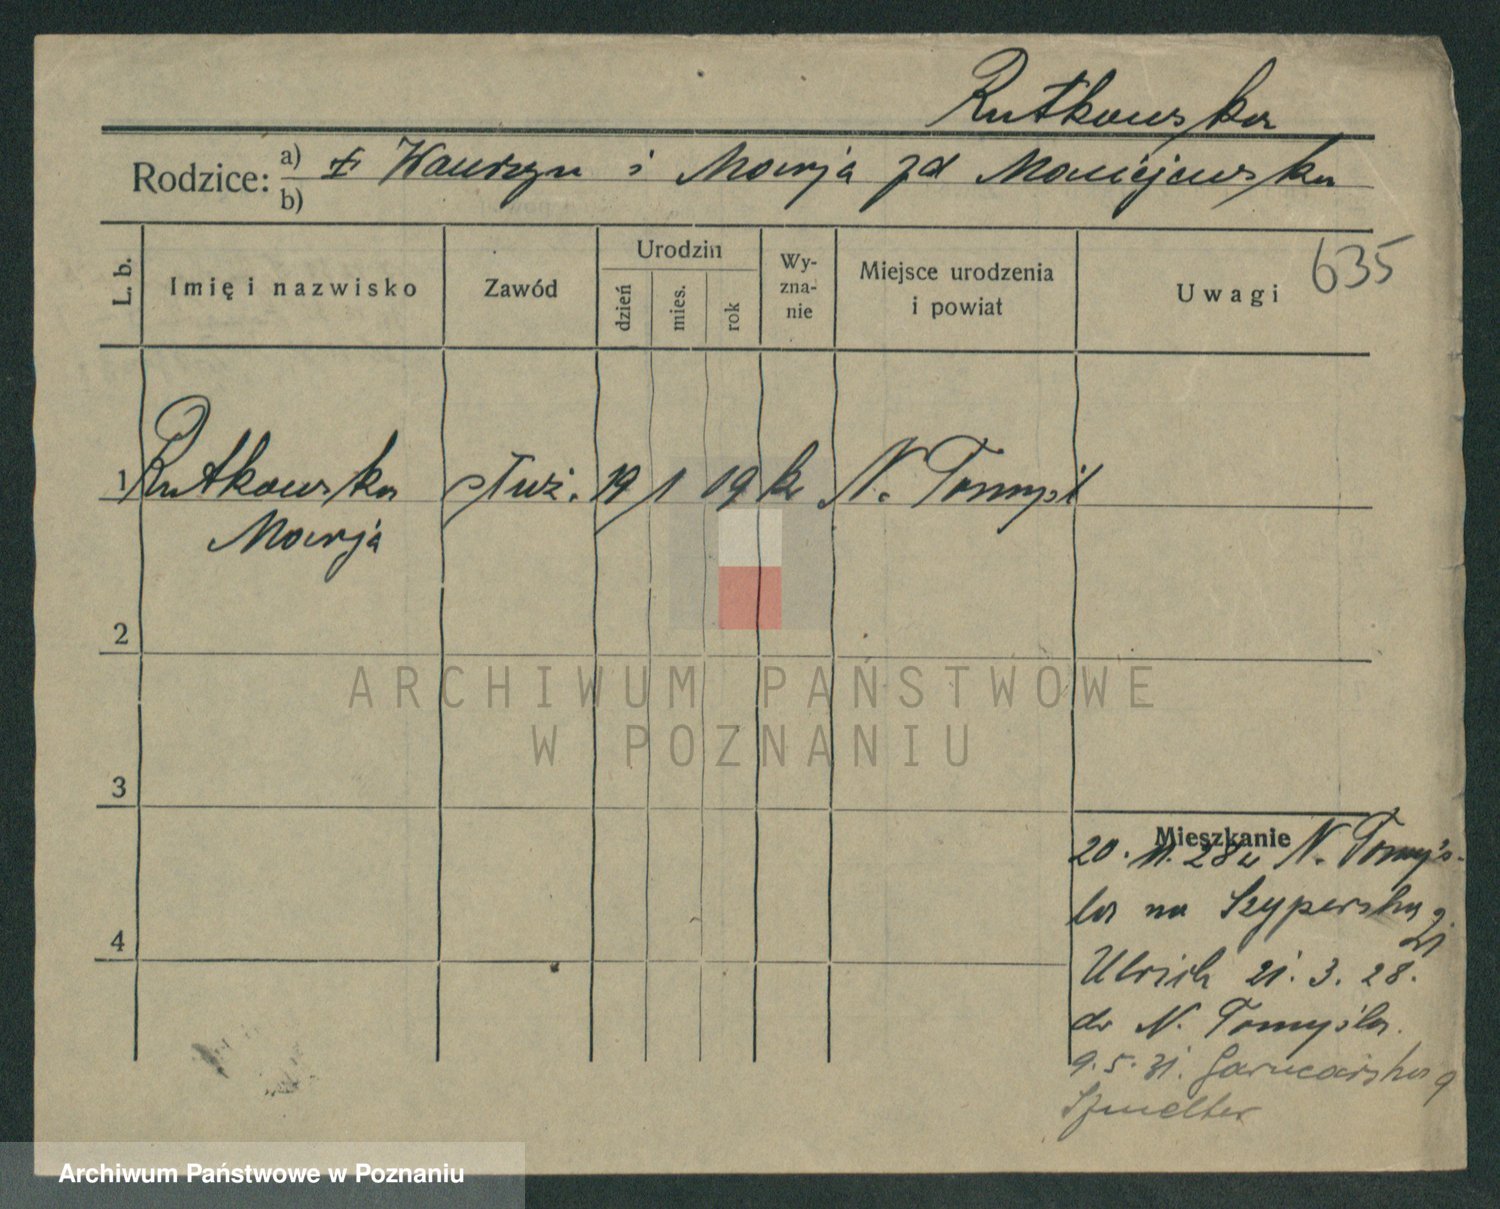 Rutkowska
Rodzice: a) Wawrzyn i Marja zd Maciejewska
b)
L. b. Imię i nazwisko Zawód Urodzin dzień mies. rok Wyznanie Miejsce urodzenia i powiat Uwagi 635
1 Rutkowska służ. 19/1 09 kr N. Tomyśl
Marja
2
3
4
Mieszkanie
20. 11. 28 N. Tomyś-
la na Szyperska 9
Ulrich 21. 3. 28.
do N. Tomyśla.
9. 5. 31. Garncarska 9
ARCHIWUM PAŃSTWOWE
W POZNANIU
Archiwum Państwowe w Poznaniu